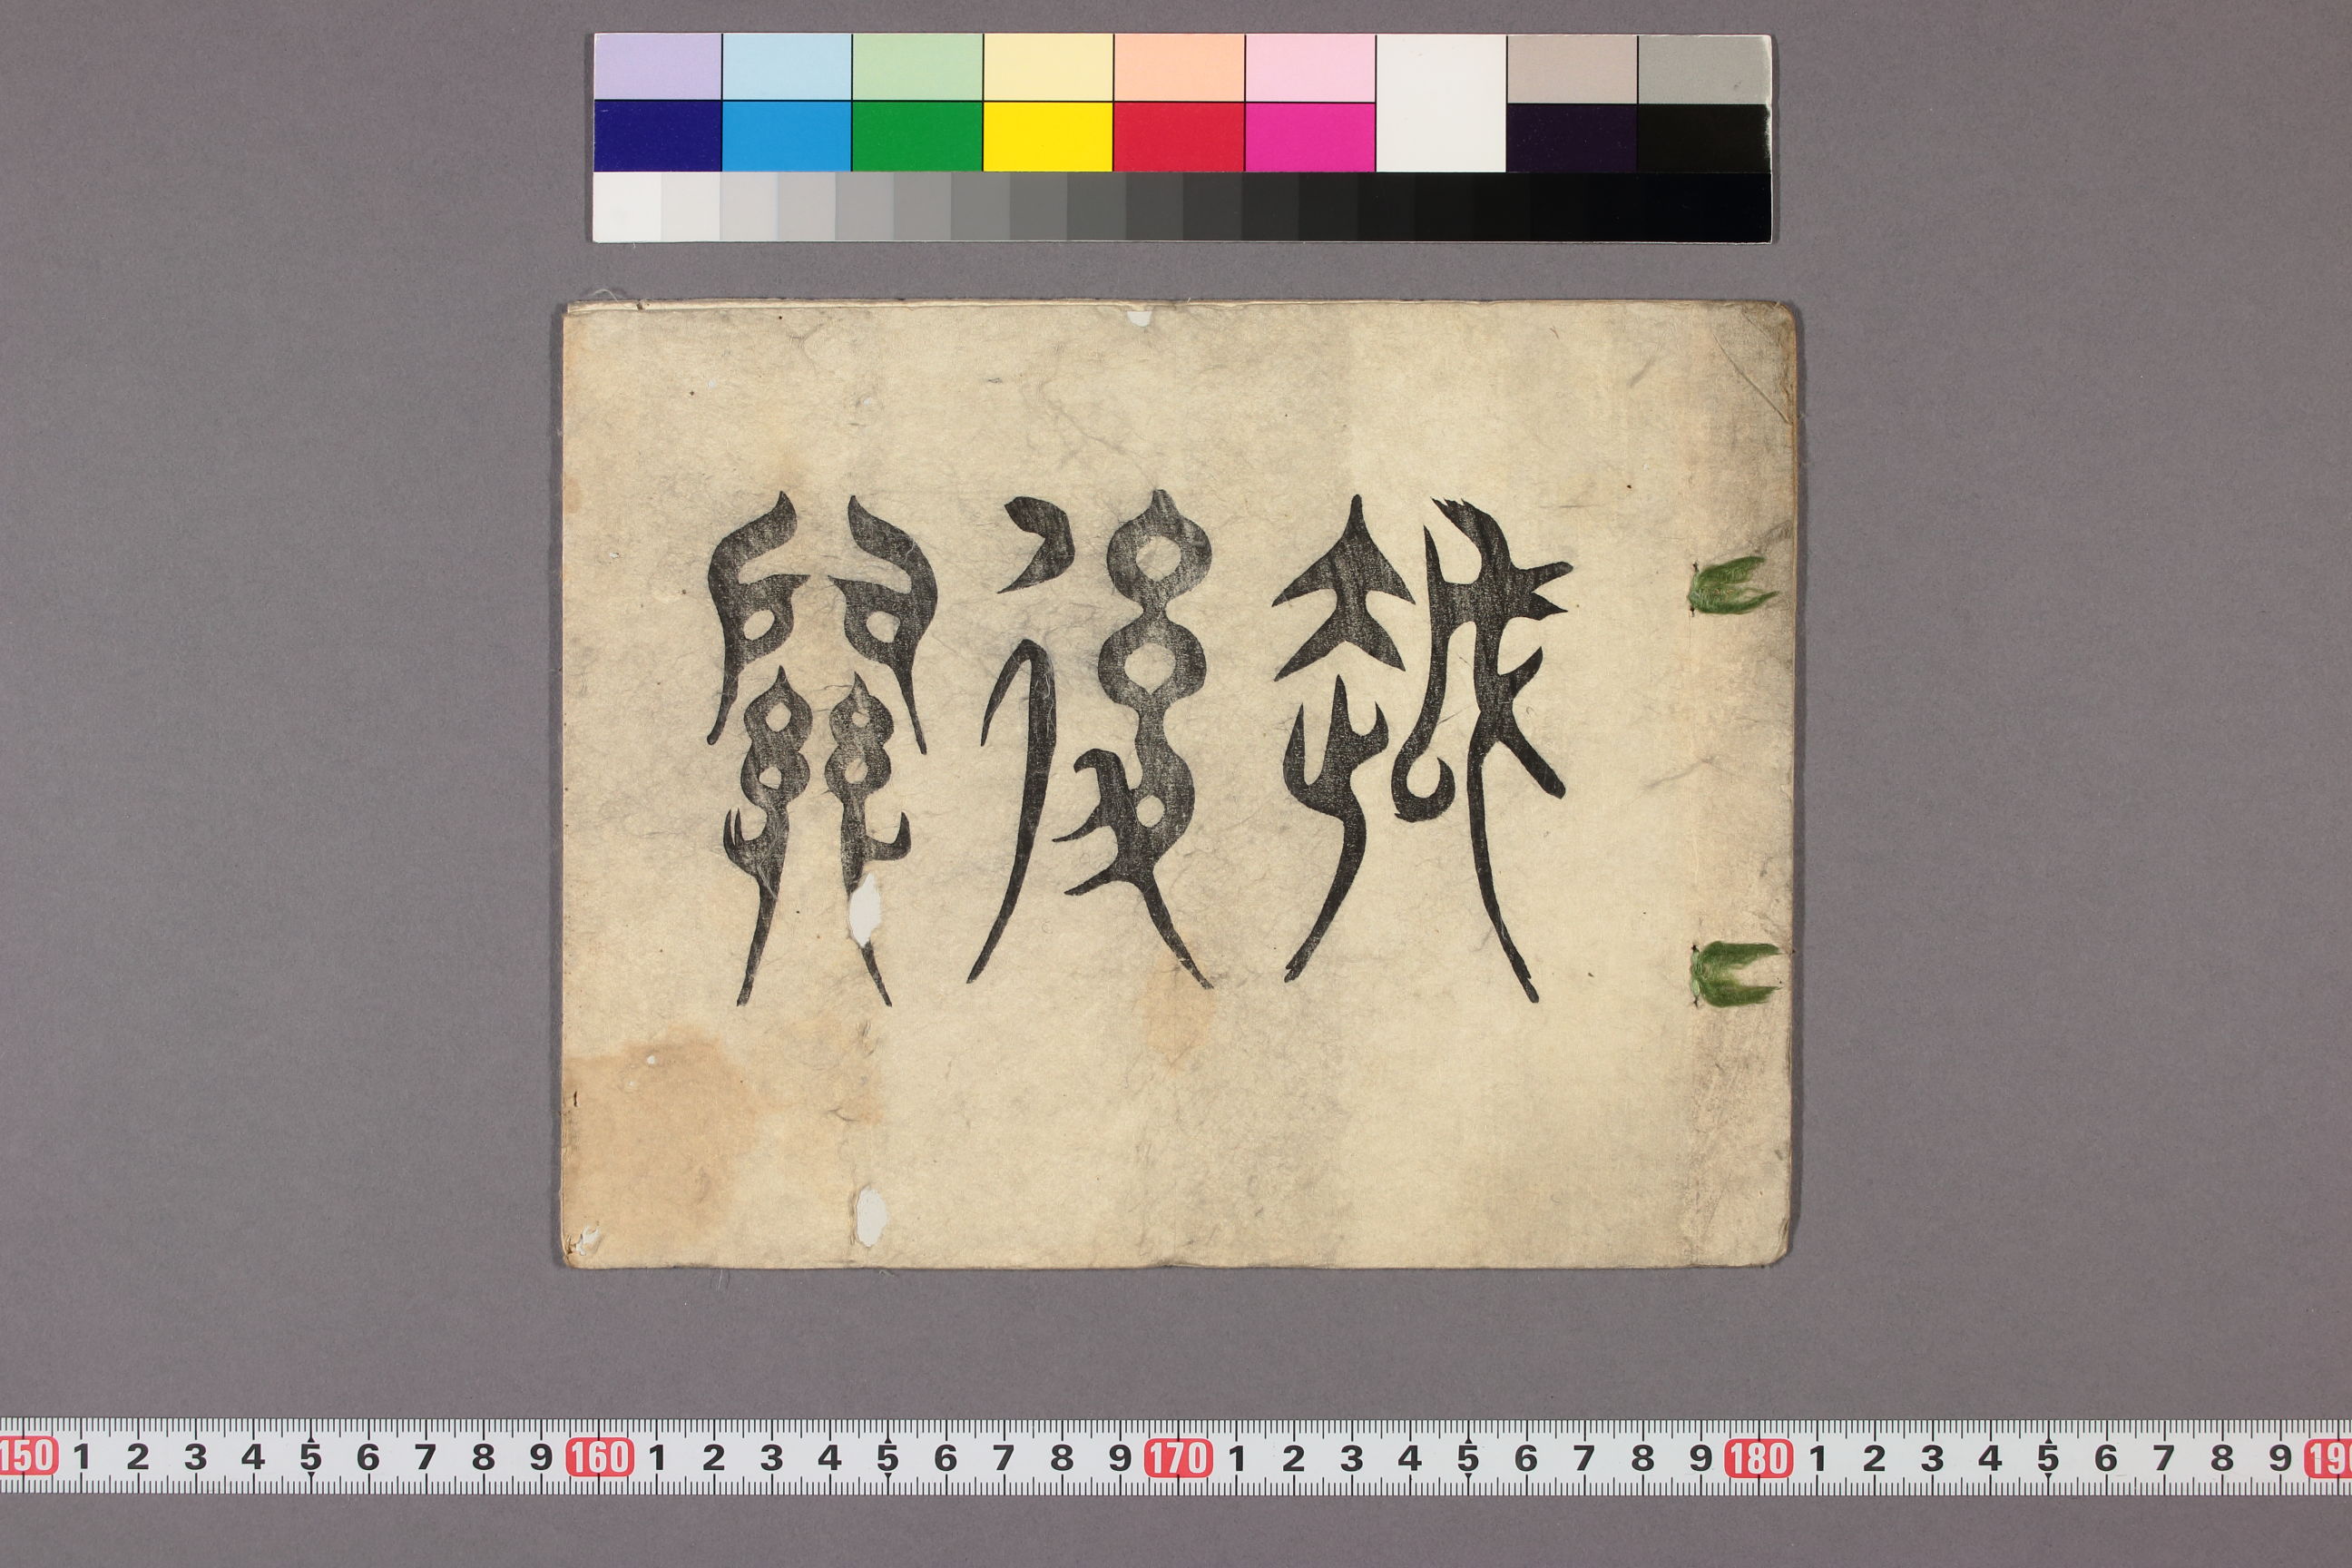 越後關
150 1 2 3 4 5 6 7 8 9 160 1 2 3 4 5 6 7 8 9 170 1 2 3 4 5 6 7 8 9 180 1 2 3 4 5 6 7 8 9 190